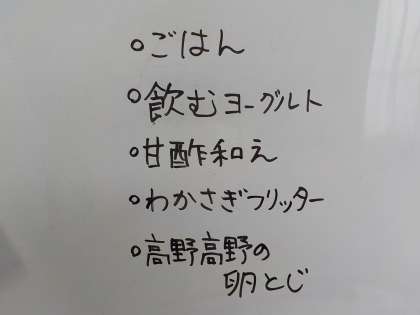 ○ごはん
○飲むヨーグルト
○甘酢和え
○わかさぎフリッター
○高野高野の
卵とじ